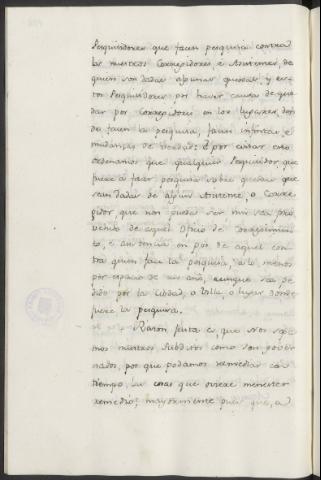 Pesquisidores que facen pesquisa contra
los nuestros Correxidores, é Asistentes, de
quien son dadas algunas quexas, y es
tos Pesquisidores por haver causa de que
dar por Correxidores en los lugares, don
de facen la pesquisa, facen infortas, é
mudanzas de verdad: É por evitar esto
ordenamos que qualquier Pesquisidor, que
fuere á facer pesquisa sobre quexas que
sean dadas de algun Asistente, o Corre
gidor que non pueda ser nin sea pro
veido de aquel oficio de Corregimien
to, é Asistencia en pos de aquel con
tra quien face la pesquisa, a lo menos
por espacio de un año, aunque sea pe
dido por la Cibdad, o Villa, o lugar donde
fuere la pesquisa.
Razon justa es, que Nos sepa
mos nuestros subditos como son gover
nados, por que podamos remediar con
tiempo, las cosas que oviere menester
remedio, mayormente pues que, a